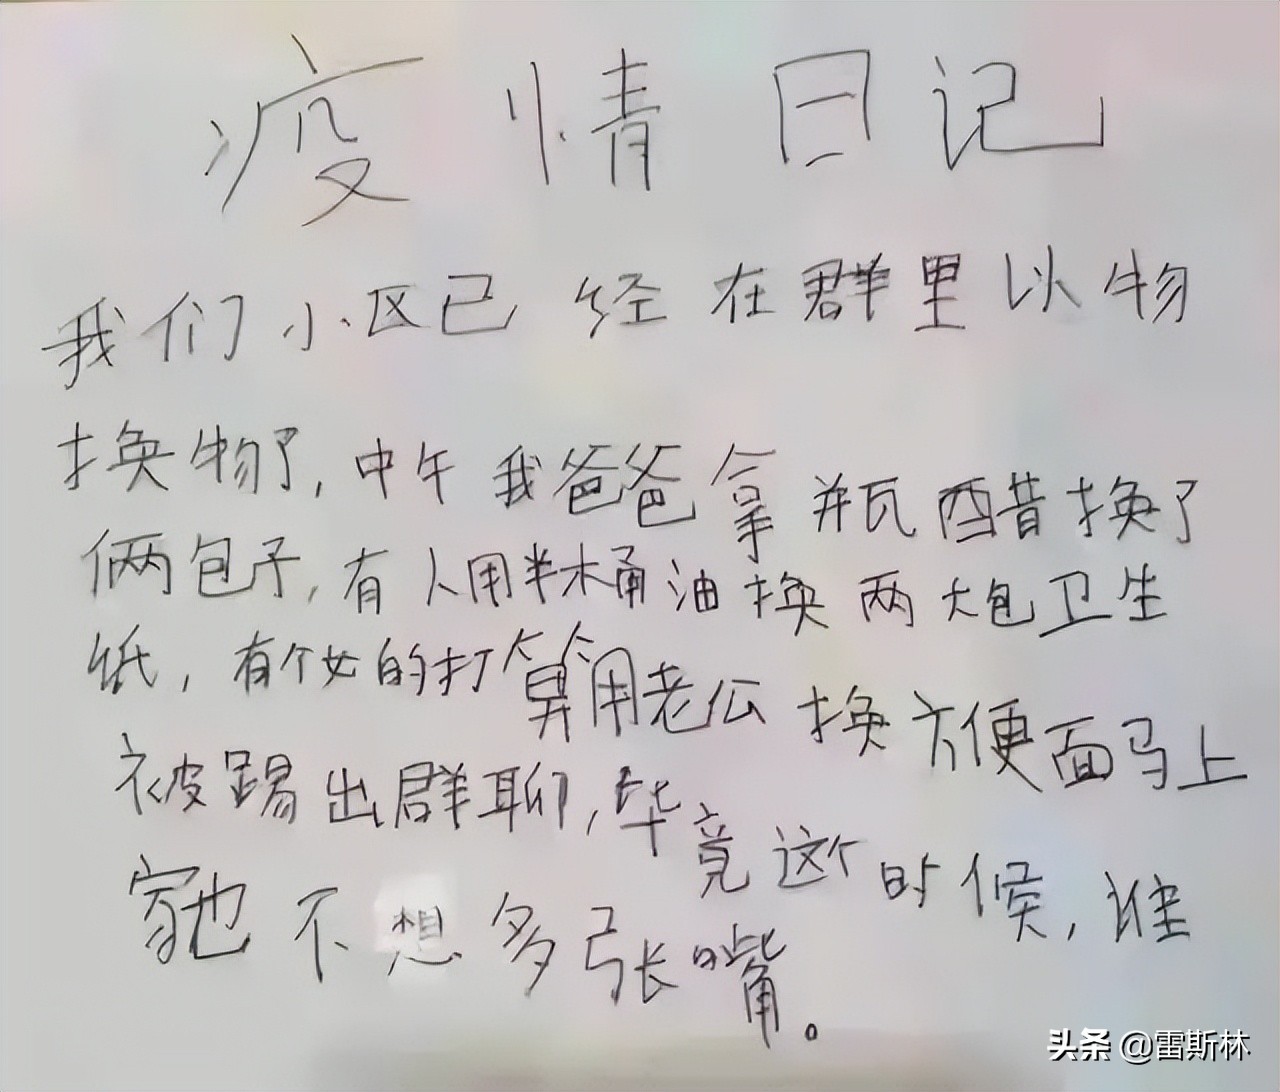 疫情日记
我们小区已经在群里以物
换物了,中午我爸爸拿瓶醋换了
俩包子,有人用半桶油换两大包卫生
纸,有个女的打算用老公换方便面马上
被踢出群聊,毕竟这个时候,谁
家也不想多张嘴。
头条 @雷斯林